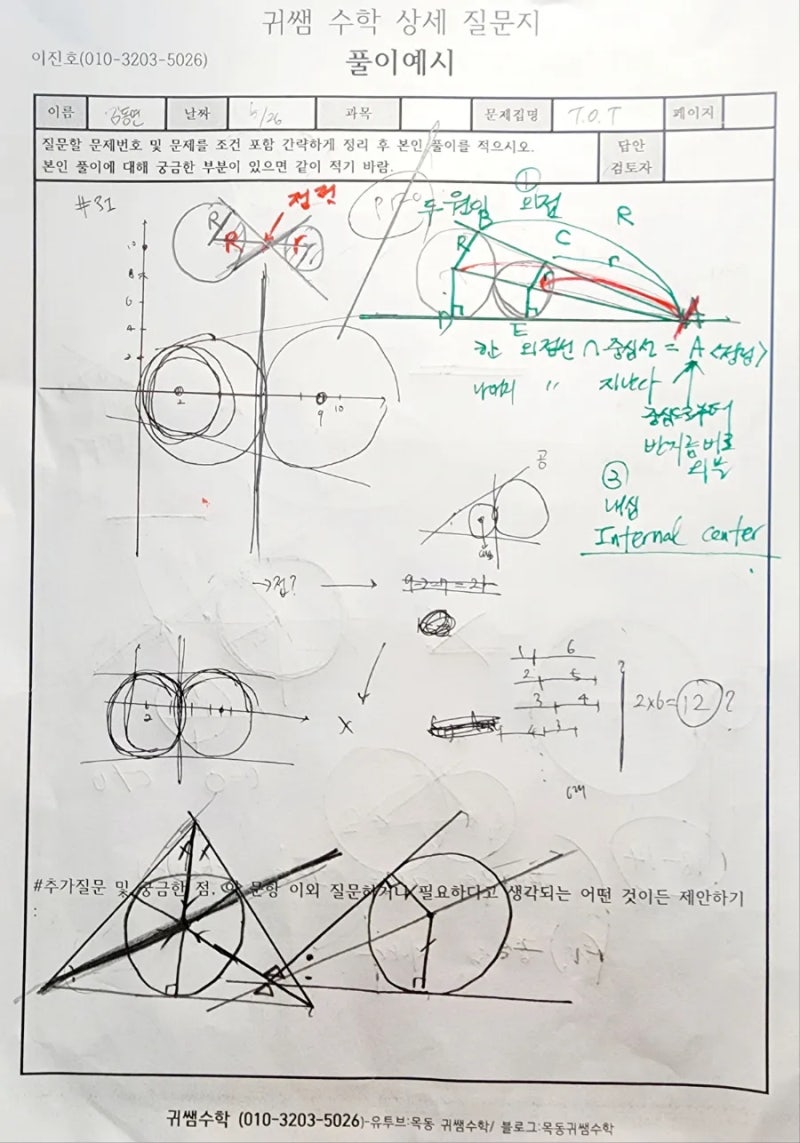 귀쌤 수학 상세 질문지
이진호(010-3203-5026)
풀이예시
이름 김동연 날짜 5/26 과목 문제집명 T.O.T 페이지
질문할 문제번호 및 문제를 조건 포함 간략하게 정리 후 본인 풀이를 적으시오.
본인 풀이에 대해 궁금한 부분이 있으면 같이 적기 바람.
답안
검토자
#31
접점
R
R
r
P 50
① 
두 원의 외접
R
B
C
R
r
r
D
E
한 외접선 ∩ 중심선 = A
나머지 〃 지난다
중심으로부터
반지름비로
외분
10
8
6
4
2
2
9
10
공
③
내심
Internal center
→접?
1 6
2 5
3 4
4 3
2x6=12?
6개
2
X
#추가질문 및 궁금한 점. 이 문항 이외 질문하거나 필요하다고 생각되는 어떤 것이든 제안하기
:
귀쌤수학 (010-3203-5026)-유투브:목동 귀쌤수학/ 블로그:목동귀쌤수학